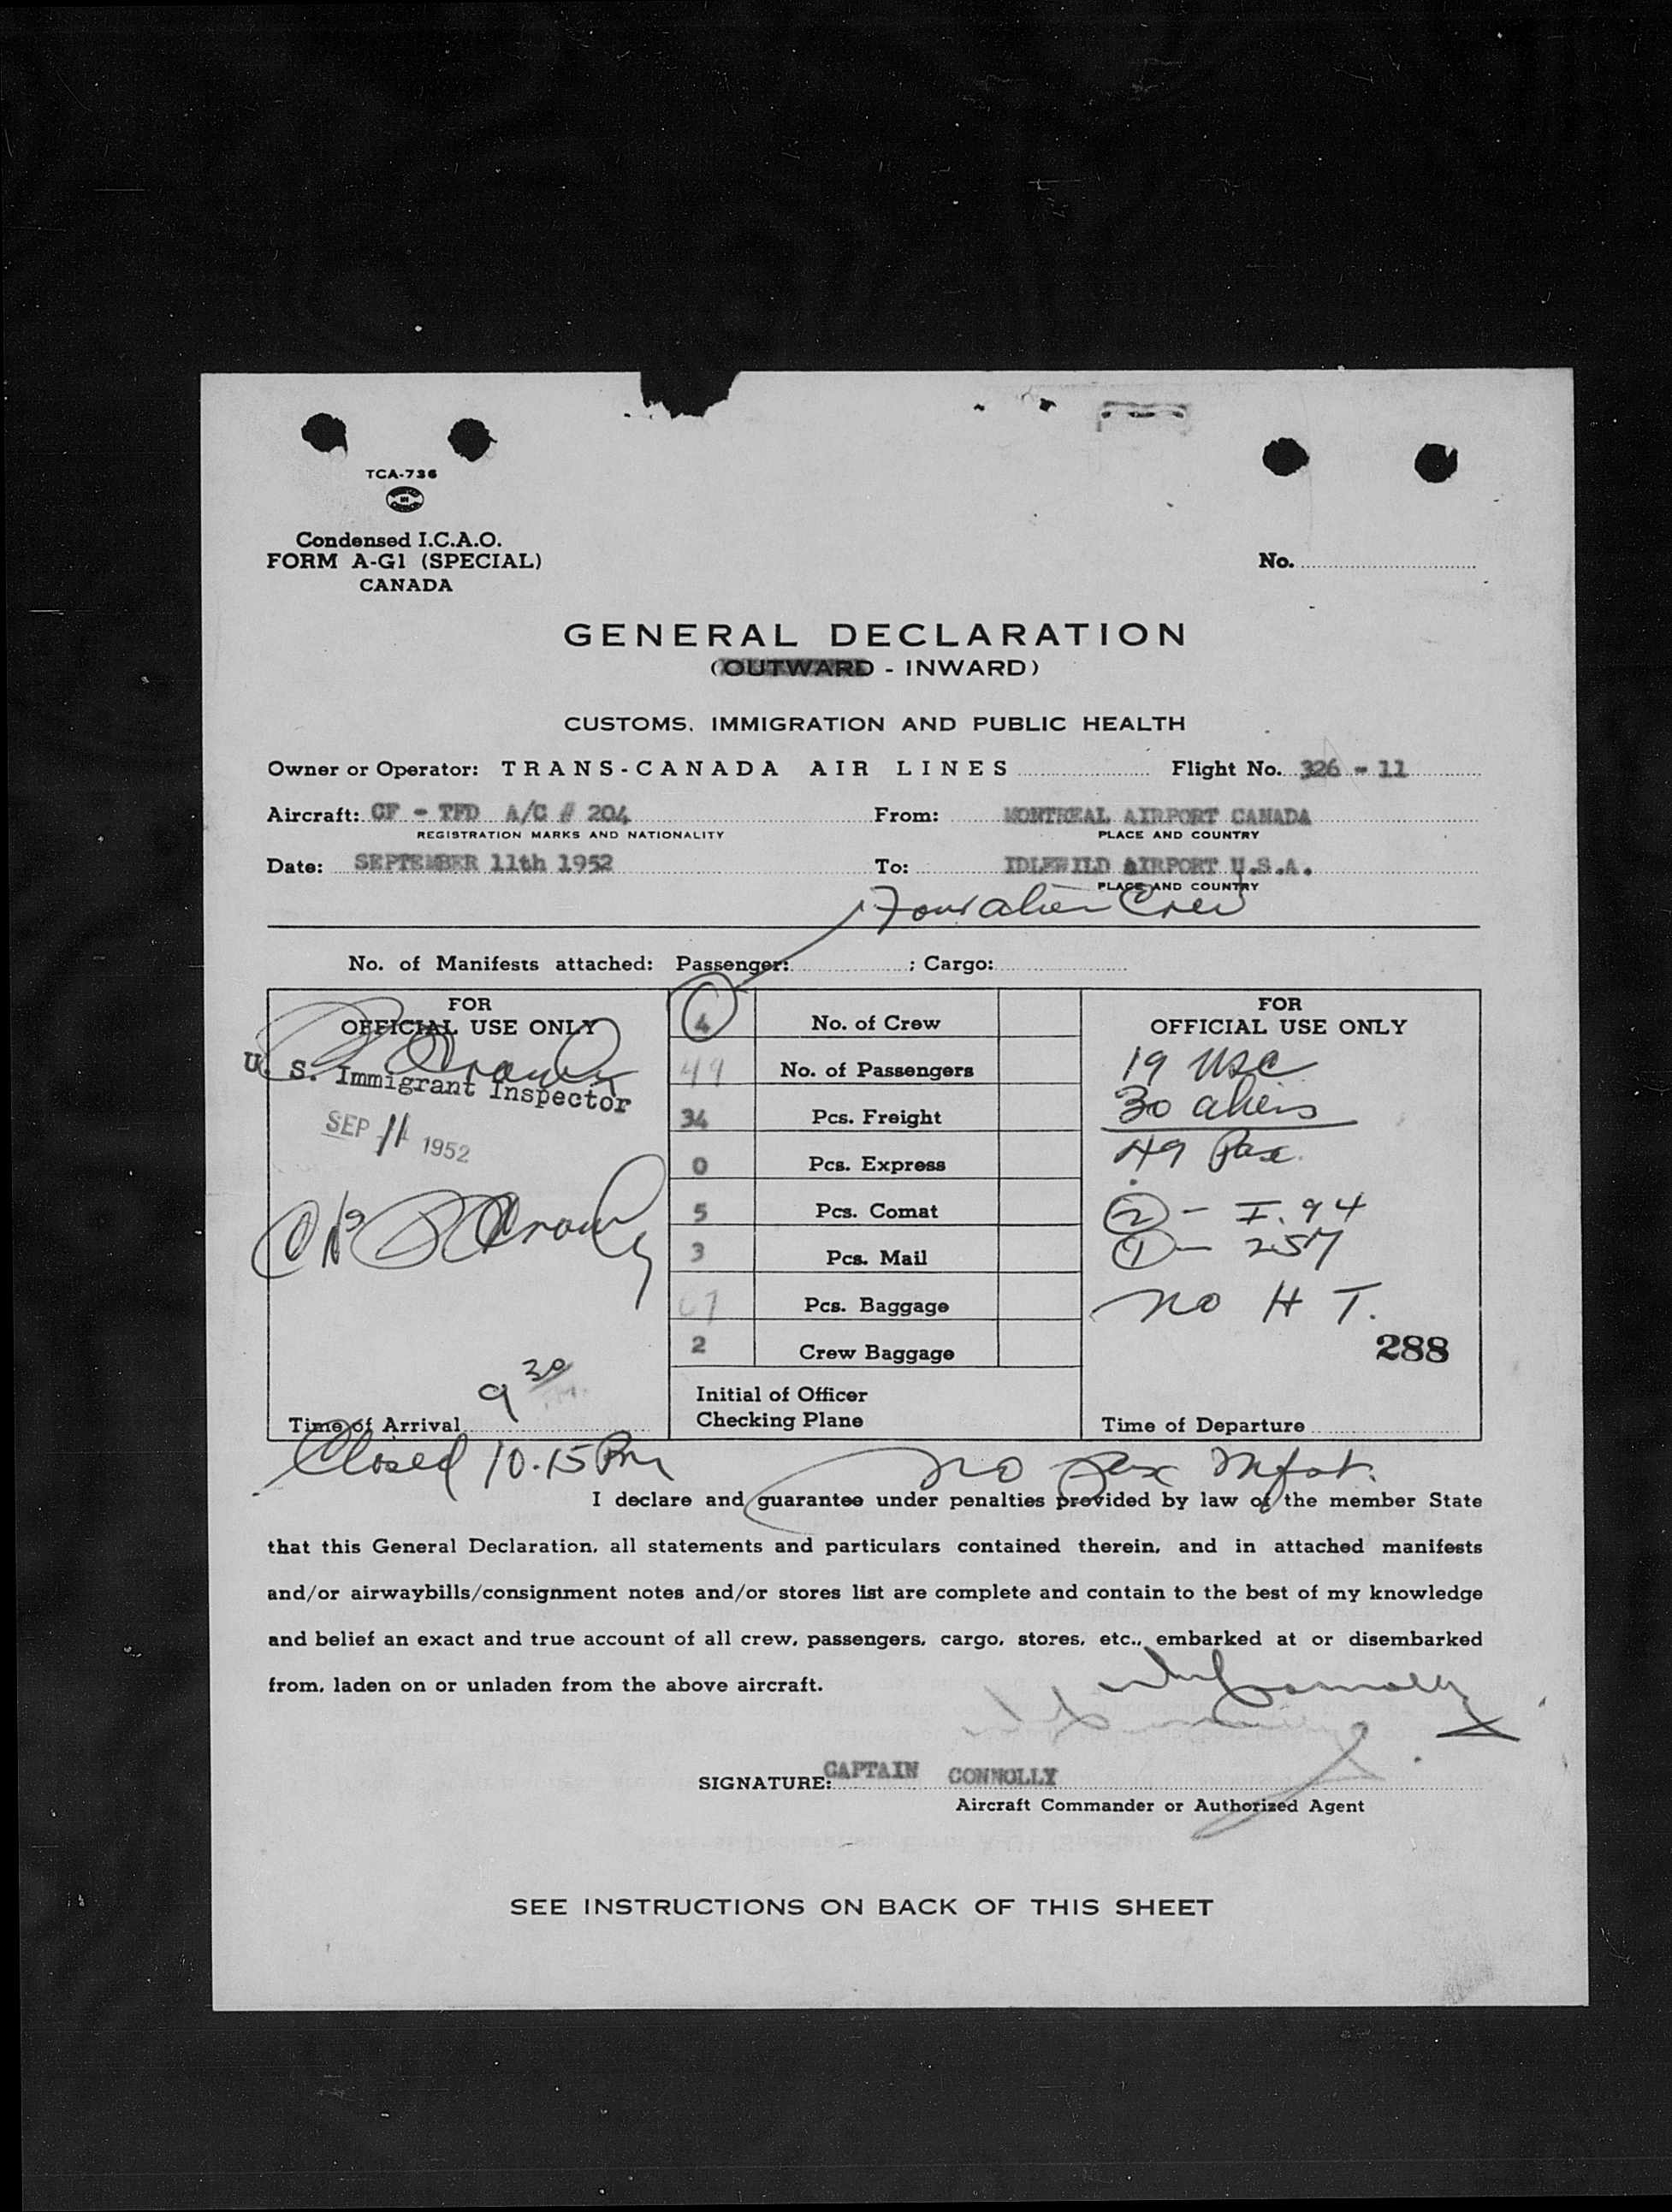 TCA-736
Condensed I.C.A.O.
FORM A-G1 (SPECIAL)
CANADA
No.
GENERAL DECLARATION
(OUTWARD - INWARD)
CUSTOMS, IMMIGRATION AND PUBLIC HEALTH
Owner or Operator: TRANS-CANADA AIR LINES Flight No. 326 - 11
Aircraft: CF - TFD A/C # 204 From: MONTREAL AIRPORT CANADA
REGISTRATION MARKS AND NATIONALITY PLACE AND COUNTRY
Date: SEPTEMBER 11th 1952 To: IDLEWILD AIRPORT U.S.A.
PLACE AND COUNTRY
Four alien Crew
No. of Manifests attached: Passenger: ; Cargo:
FOR
OFFICIAL USE ONLY
U. S. Immigrant Inspector
SEP 11 1952
9 30
Time of Arrival
4 No. of Crew
49 No. of Passengers
34 Pcs. Freight
0 Pcs. Express
5 Pcs. Comat
3 Pcs. Mail
67 Pcs. Baggage
2 Crew Baggage
Initial of Officer
Checking Plane
FOR
OFFICIAL USE ONLY
19 USC
30 aliens
49 Pax.
2 - I.94
1 - 257
no H T.
288
Time of Departure
Closed 10.15 Pm no pax Mfst.
I declare and guarantee under penalties provided by law of the member State
that this General Declaration, all statements and particulars contained therein, and in attached manifests
and/or airwaybills/consignment notes and/or stores list are complete and contain to the best of my knowledge
and belief an exact and true account of all crew, passengers, cargo, stores, etc., embarked at or disembarked
from, laden on or unladen from the above aircraft.
SIGNATURE: CAPTAIN CONNOLLY
Aircraft Commander or Authorized Agent
SEE INSTRUCTIONS ON BACK OF THIS SHEET